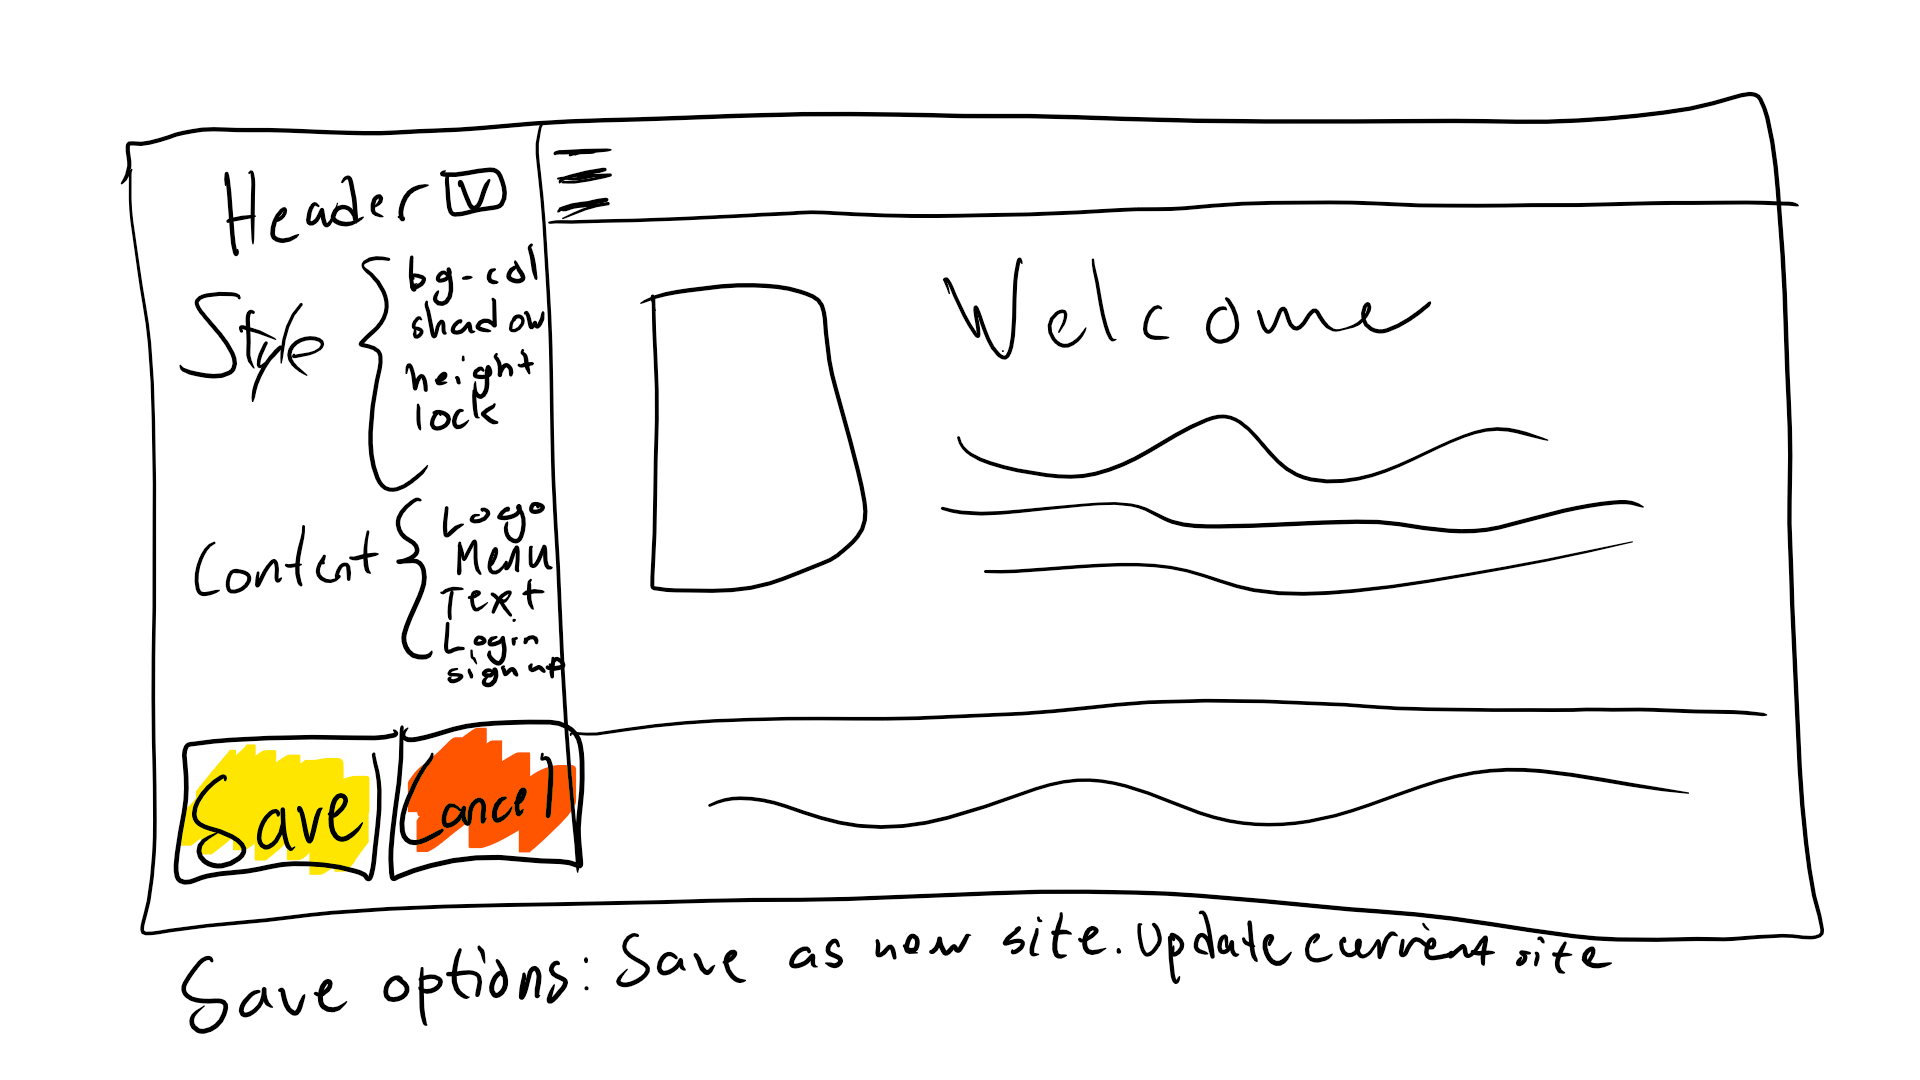 Header V
Style
bg-col
shadow
height
lock
Content
Logo
Menu
Text
Login
sign up
Save
Cancel
Welcome
Save options: Save as new site. Update current site